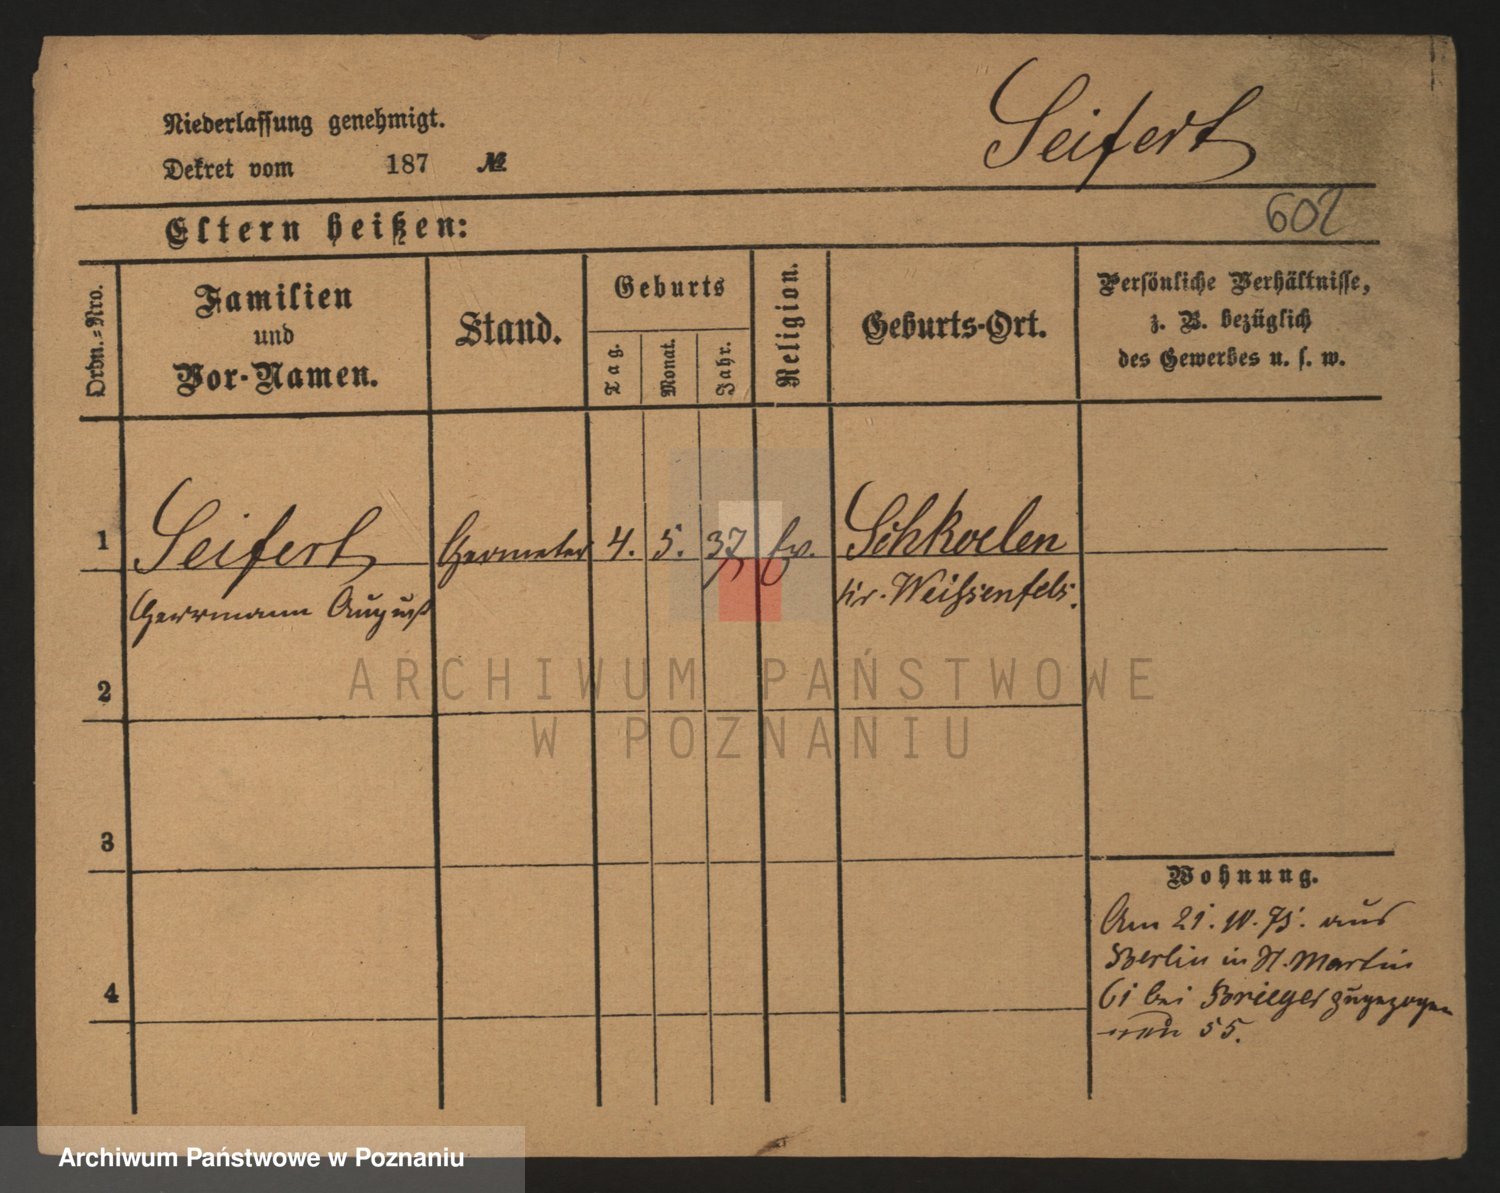 Niederlassung genehmigt.
Dekret vom 187 №
Seifert
602
Eltern heißen:
Ordn.-Nro.
Familien
und
Vor-Namen.
Stand.
Geburts
Tag.
Monat.
Jahr.
Religion.
Geburts-Ort.
Persönliche Verhältnisse,
z. B. bezüglich
des Gewerbes u. s. w.
1 Seifert Geometer 4. 5. 37 ev. Schkoelen
Herrmann August Kr. Weißenfels.
2
ARCHIWUM PAŃSTWOWE
W POZNANIU
3
Wohnung.
Am 21. 10. 75. aus
Berlin in St. Martin
61 bei Brieger zugezogen
neu 55.
4
Archiwum Państwowe w Poznaniu